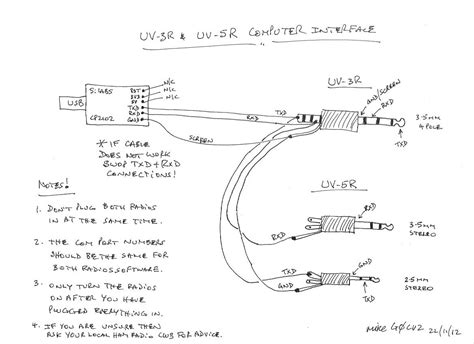 UV-3R & UV-5R COMPUTER INTERFACE
UV-3R
SiLABS
CP2102
USB
RST
3V3
5V
TXD
RXD
GND
N/C
N/C
N/C
TXD
RXD
SCREEN
GND/SCREEN
RXD
TXD
3.5mm
4 POLE
* IF CABLE
DOES NOT WORK
SWOP TXD+RXD
CONNECTIONS!
NOTES!
1. DON'T PLUG BOTH RADIOS
IN AT THE SAME TIME.
2. THE COM PORT NUMBERS
SHOULD BE THE SAME FOR
BOTH RADIOS SOFTWARE.
3. ONLY TURN THE RADIOS
ON AFTER YOU HAVE
PLUGGED EVERYTHING IN.
4. IF YOU ARE UNSURE THEN
ASK YOUR LOCAL HAM RADIO CLUB FOR ADVICE.
UV-5R
RXD
RXD
3.5mm
STEREO
TXD
GND
GND
TXD
2.5mm
STEREO
22/11/12